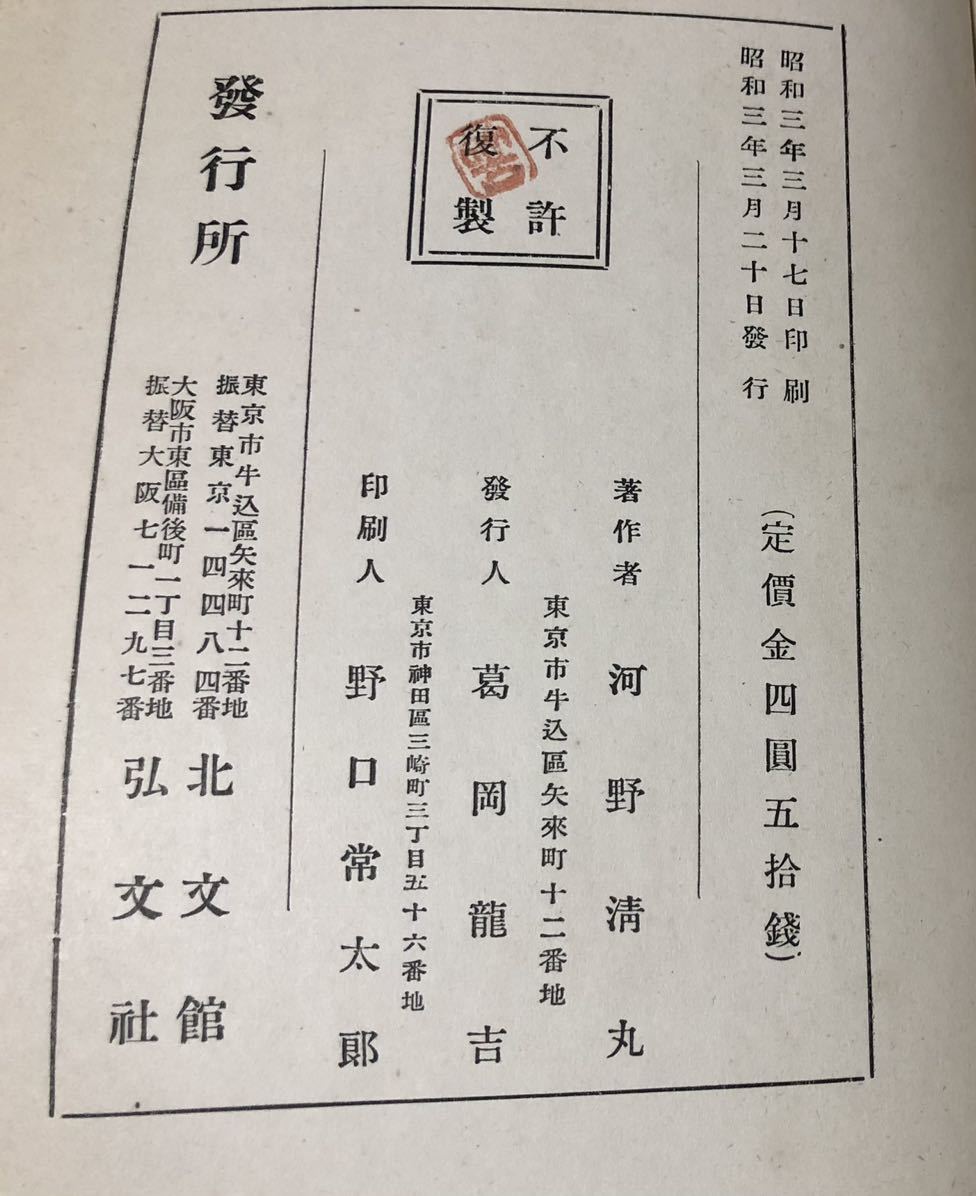 昭和三年三月十七日印刷
昭和三年三月二十日發行
(定價金四圓五拾錢)
不許
復製
著作者 河野淸丸
東京市牛込區矢來町十二番地
發行人 葛岡龍吉
東京市神田區三崎町三丁目五十六番地
印刷人 野口常太郞
發行所
東京市牛込區矢來町十二番地
振替東京一四四八四番
北文館
大阪市東區備後町一丁目三番地
振替大阪七一二九七番
弘文社